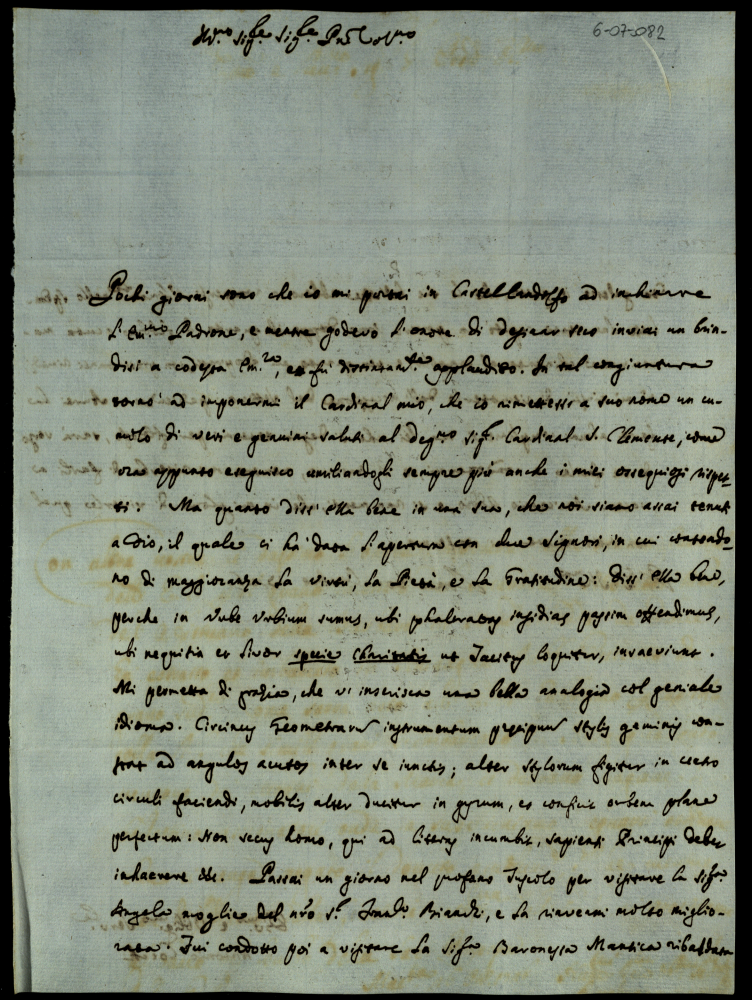 6-07-082
Ill.mo Sig.re Sig.re Pad.
Pochi giorni sono che io mi portai in Castellandolfo ad inchinare
l'Em.mo Padrone, e mentre godevo l'onore di desinar seco inviai un brin-
disi a codesta Em.za, e fù distintam.te applaudito. In tal congiuntura
tornò ad impormi il Cardinal mio, che io rimettessi a suo nome un cu-
mulo di veri e genuini saluti al deg.mo Sig.r Cardinal S. Clemente, come
ora appunto eseguisco umiliandogli sempre più anche i miei ossequiosi rispet-
ti. Ma quanto diss' ella bene in una sua, che noi siamo assai tenuti
a Dio, il quale ci hà data l'apertura con due Signori, in cui contendo-
no di maggioranza la virtù, la Pietà, e la Gratitudine: diss' ella bene,
perche in Urbe Urbium sumus, ubi phaleratas insidias passim offendimus,
ubi nequitia et livor specie Charitatis ut Tacitus loquitur, inveniunt.
Mi permetta di grazia, che v'inserisca una bella analogia col geniale
idioma. Circinus Geometrarum instrumentum perquam stylis geminis con-
stat ad angulos acutos inter se iunctis; alter stylorum figitur in centro
circuli faciendi, mobilis alter ducitur in gyrum, et conficit orbem plane
perfectum: Non secus homo, qui ad literas incumbit, sapienti Principi debet
inhaerere &c. Passai un giorno nel profano Tuscolo per visitare la Sig.ra
Angela moglie del nro S.r Biandi, e la rinvenni molto miglio-
rata. Fui condotto poi a visitare la Sig.ra Baronessa Mantica